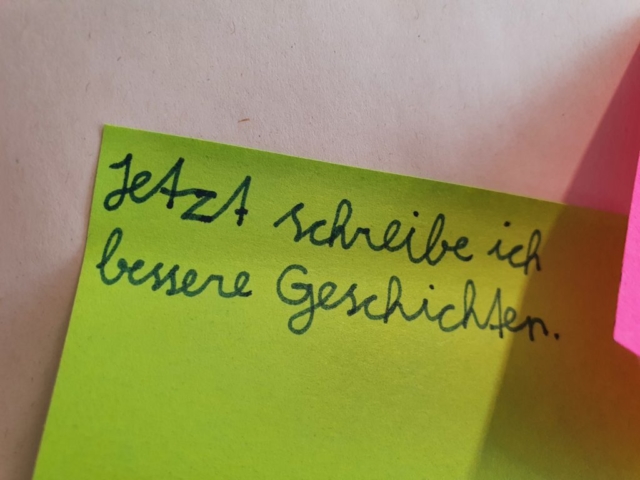 Jetzt schreibe ich
bessere Geschichten.